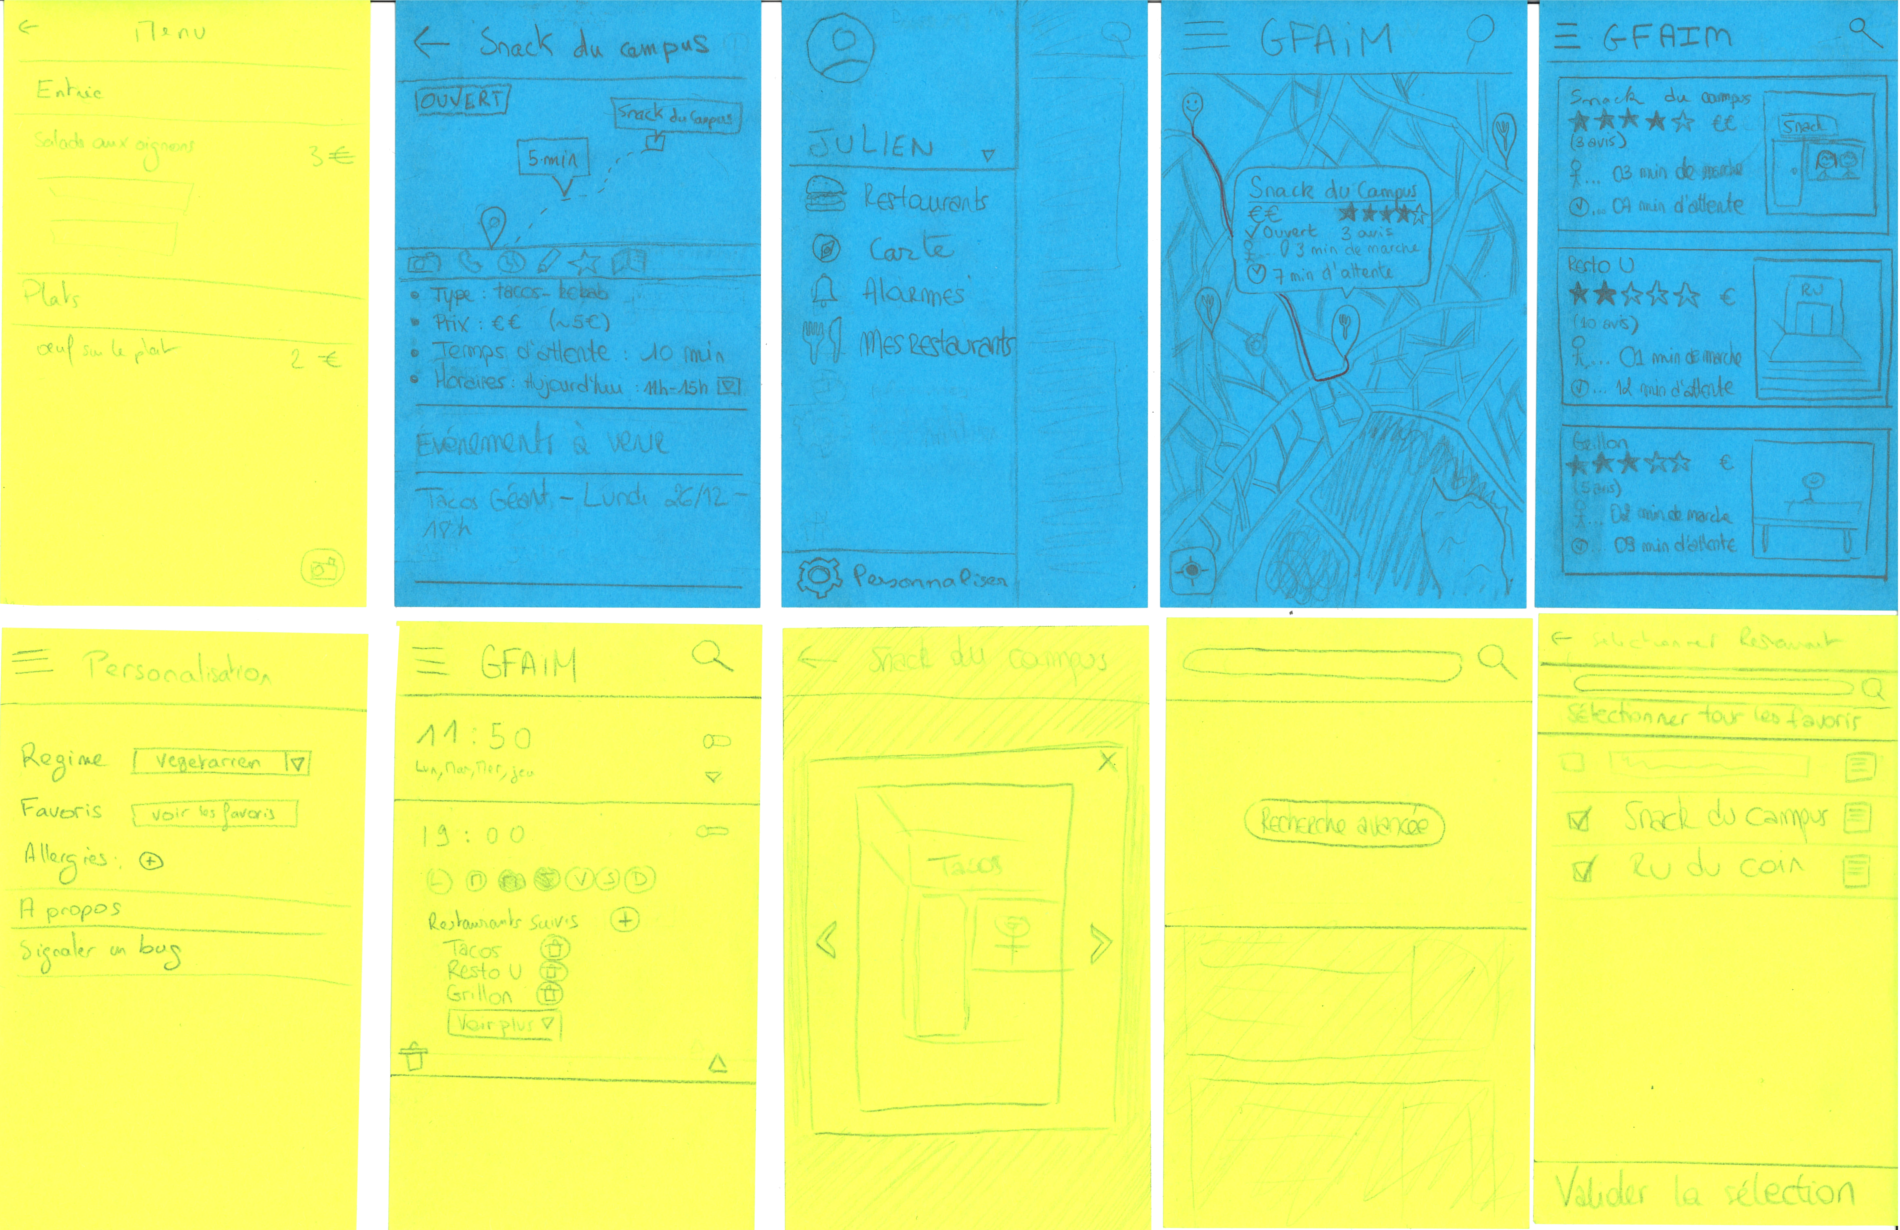 Menu
Entrée
Salade aux oignons
3 €
Plats
œuf sur le plat
2 €
Snack du campus
OUVERT
Snack du Campus
5 min
Type : tacos-kebab
Prix : €€ (~5€)
Temps d'attente : 10 min
Horaires : Aujourd'hui : 11h-15h
Evénements à venir
Tacos Géant - Lundi 26/12 -
18h
JULIEN
Restaurants
Carte
Alarmes
Mes Restaurants
Personnaliser
GFAiM
Snack du Campus
€€
Ouvert 3 avis
03 min de marche
7 min d'attente
GFAIM
Snack du campus
€€
(3 avis)
... 03 min de marche
... 07 min d'attente
Snack
Resto U
€
(10 avis)
... 01 min de marche
... 12 min d'attente
RU
Grillon
€
(5 avis)
... 02 min de marche
... 09 min d'attente
Personalisation
Regime vegetarien
Favoris voir les favoris
Allergies : +
A propos
Signaler un bug
GFAiM
11:50
Lun, Mar, Mer, jeu
19:00
L M M J V S D
Restaurants suivis +
Tacos
Resto U
Grillon
Voir plus
Snack du campus
X
Tacos
< >
Recherche avancée
Selectionner Restaurant
Sélectionner tour les favoris
Snack du campus
RU du coin
Valider la sélection